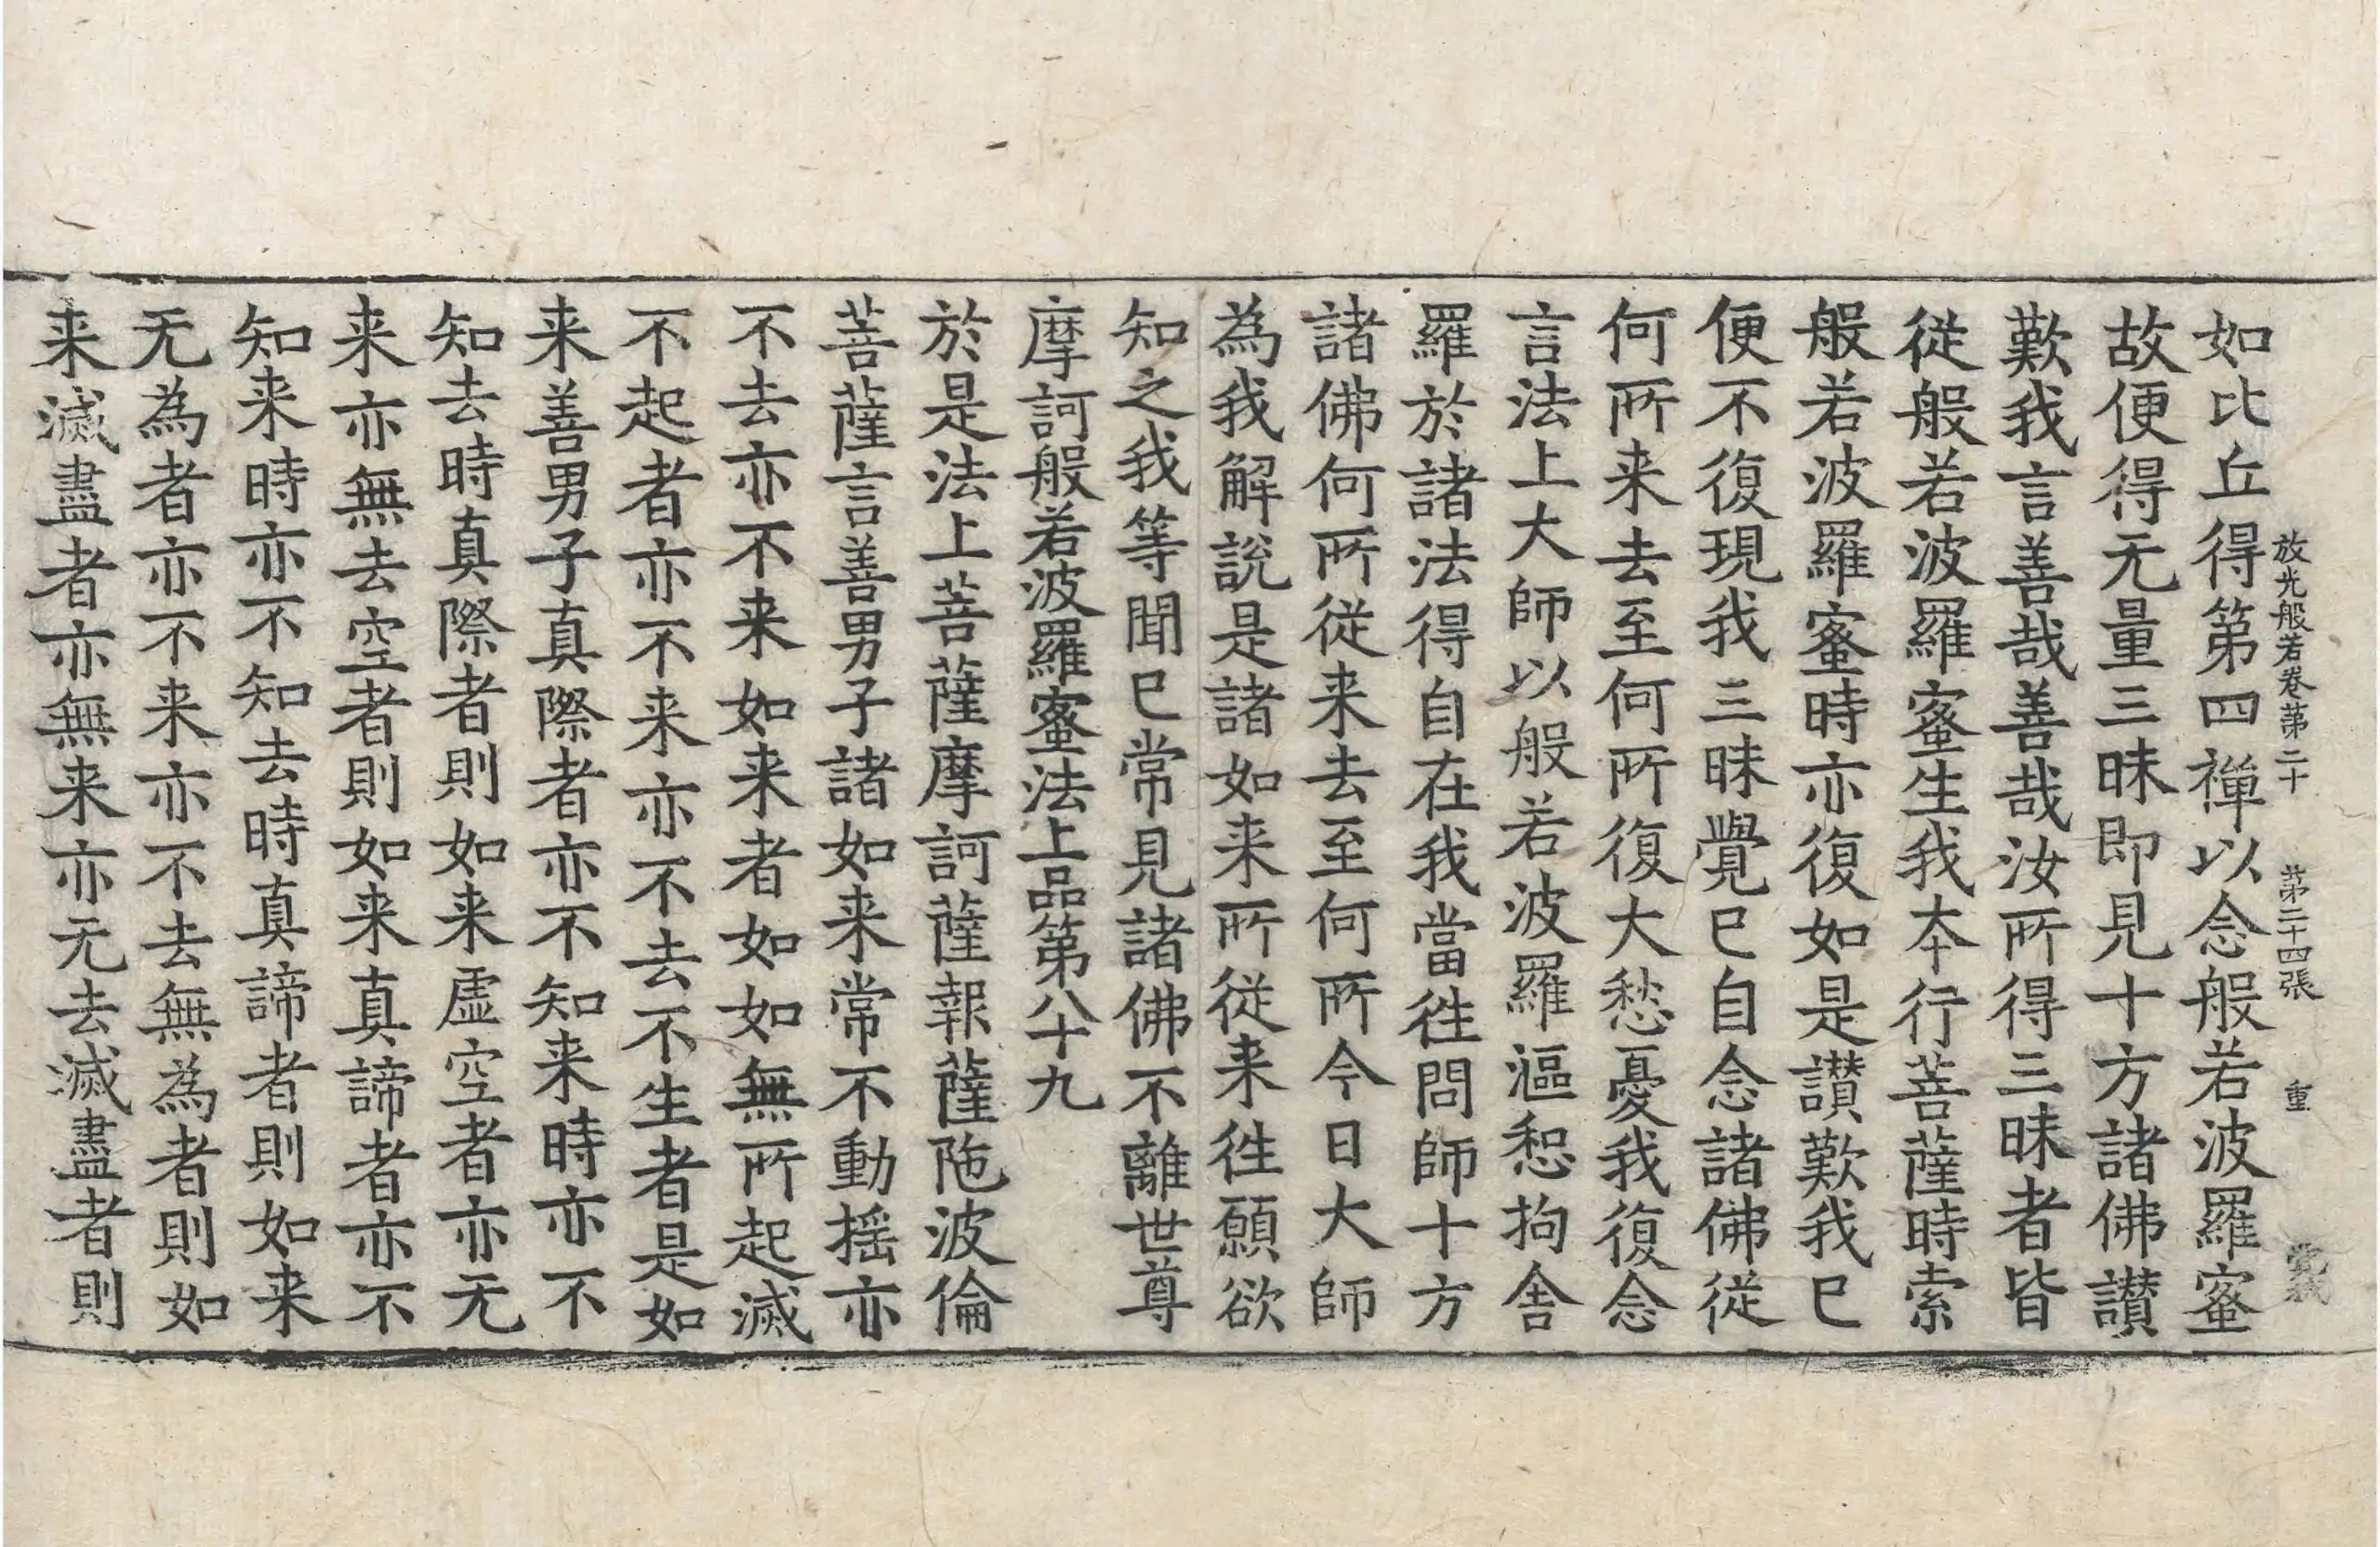 放光般若卷第二十　第二十四張　重
如比丘得第四禪以念般若波羅蜜
故便得无量三昧即見十方諸佛讃
歎我言善哉善哉汝所得三昧者皆
從般若波羅蜜生我夲行菩薩時索
般若波羅蜜時亦復如是讃歎我已
便不復現我三昧覺已自念諸佛從
何所来去至何所復大愁憂我復念
言法上大師以般若波羅漚惒拘舍
羅於諸法得自在我當徃問師十方
諸佛何所從来去至何所今日大師
為我解說是諸如来所從来徃願欲
知之我等聞已常見諸佛不離世尊
摩訶般若波羅蜜法上品第八十九
於是法上菩薩摩訶薩報薩陁波倫
菩薩言善男子諸如来常不動揺亦
不去亦不来如来者如如無所起滅
不起者亦不来亦不去不生者是如
来善男子真際者亦不知来時亦不
知去時真際者則如来虛空者亦无
来亦無去空者則如来真諦者亦不
知来時亦不知去時真諦者則如来
无為者亦不来亦不去無為者則如
来滅盡者亦無来亦无去滅盡者則